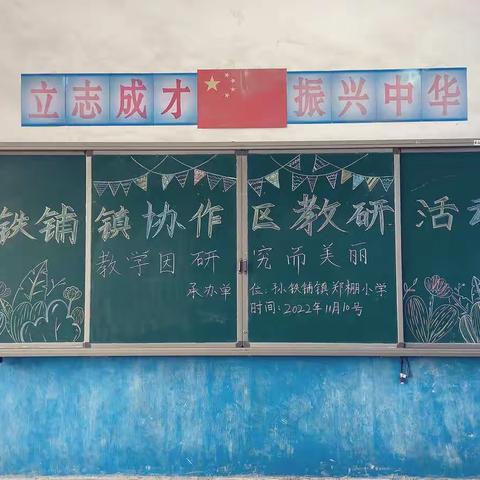 立志成才 振兴中华
铁铺镇协作区教研活动
教学因研究而美丽
承办单位:孙铁铺镇郑棚小学
时间:2022年11月10号